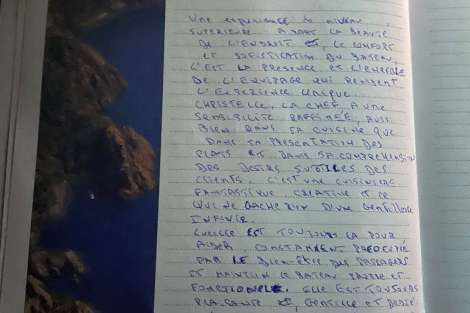 UNE EXPERIENCE DE NIVEAU
SUPERIEURE AVANT LA BEAUTÉ
DE L'ENDROIT ET, LE CONFORT
ET SOFISTICATION DU BATEAU,
C'EST LA PRESENCE ET L'ENERGIE
DE L'EQUIPAGE QUI RENDENT
L'EXPERIENCE UNIQUE.
CHRISTELLE, LA CHEF A UNE
SENSIBILITÉ RAFFINÉE, AUSSI
BIEN DANS SA CUISINE QUE
DANS SA PRESENTATION DES
PLATS ET DANS SA COMPREHENSION
DES DESIRS SUBTILES DES
CLIENTS. C'EST UNE CUISINIERE
FANTASTIQUE CREATIVE ET CE
QUI NE GACHE RIEN D'UNE GENTILLESSE
INFINIE.
EST TOUJOURS LA POUR
AIDER CONSTAMMENT PREOCCUPÉ
PAR LE BIEN-ÊTRE DES PASSAGERS
ET MAINTIEN LE BATEAU PROPRE ET
FONCTIONNEL. ELLE EST TOUJOURS
ET, GENTILLE ET